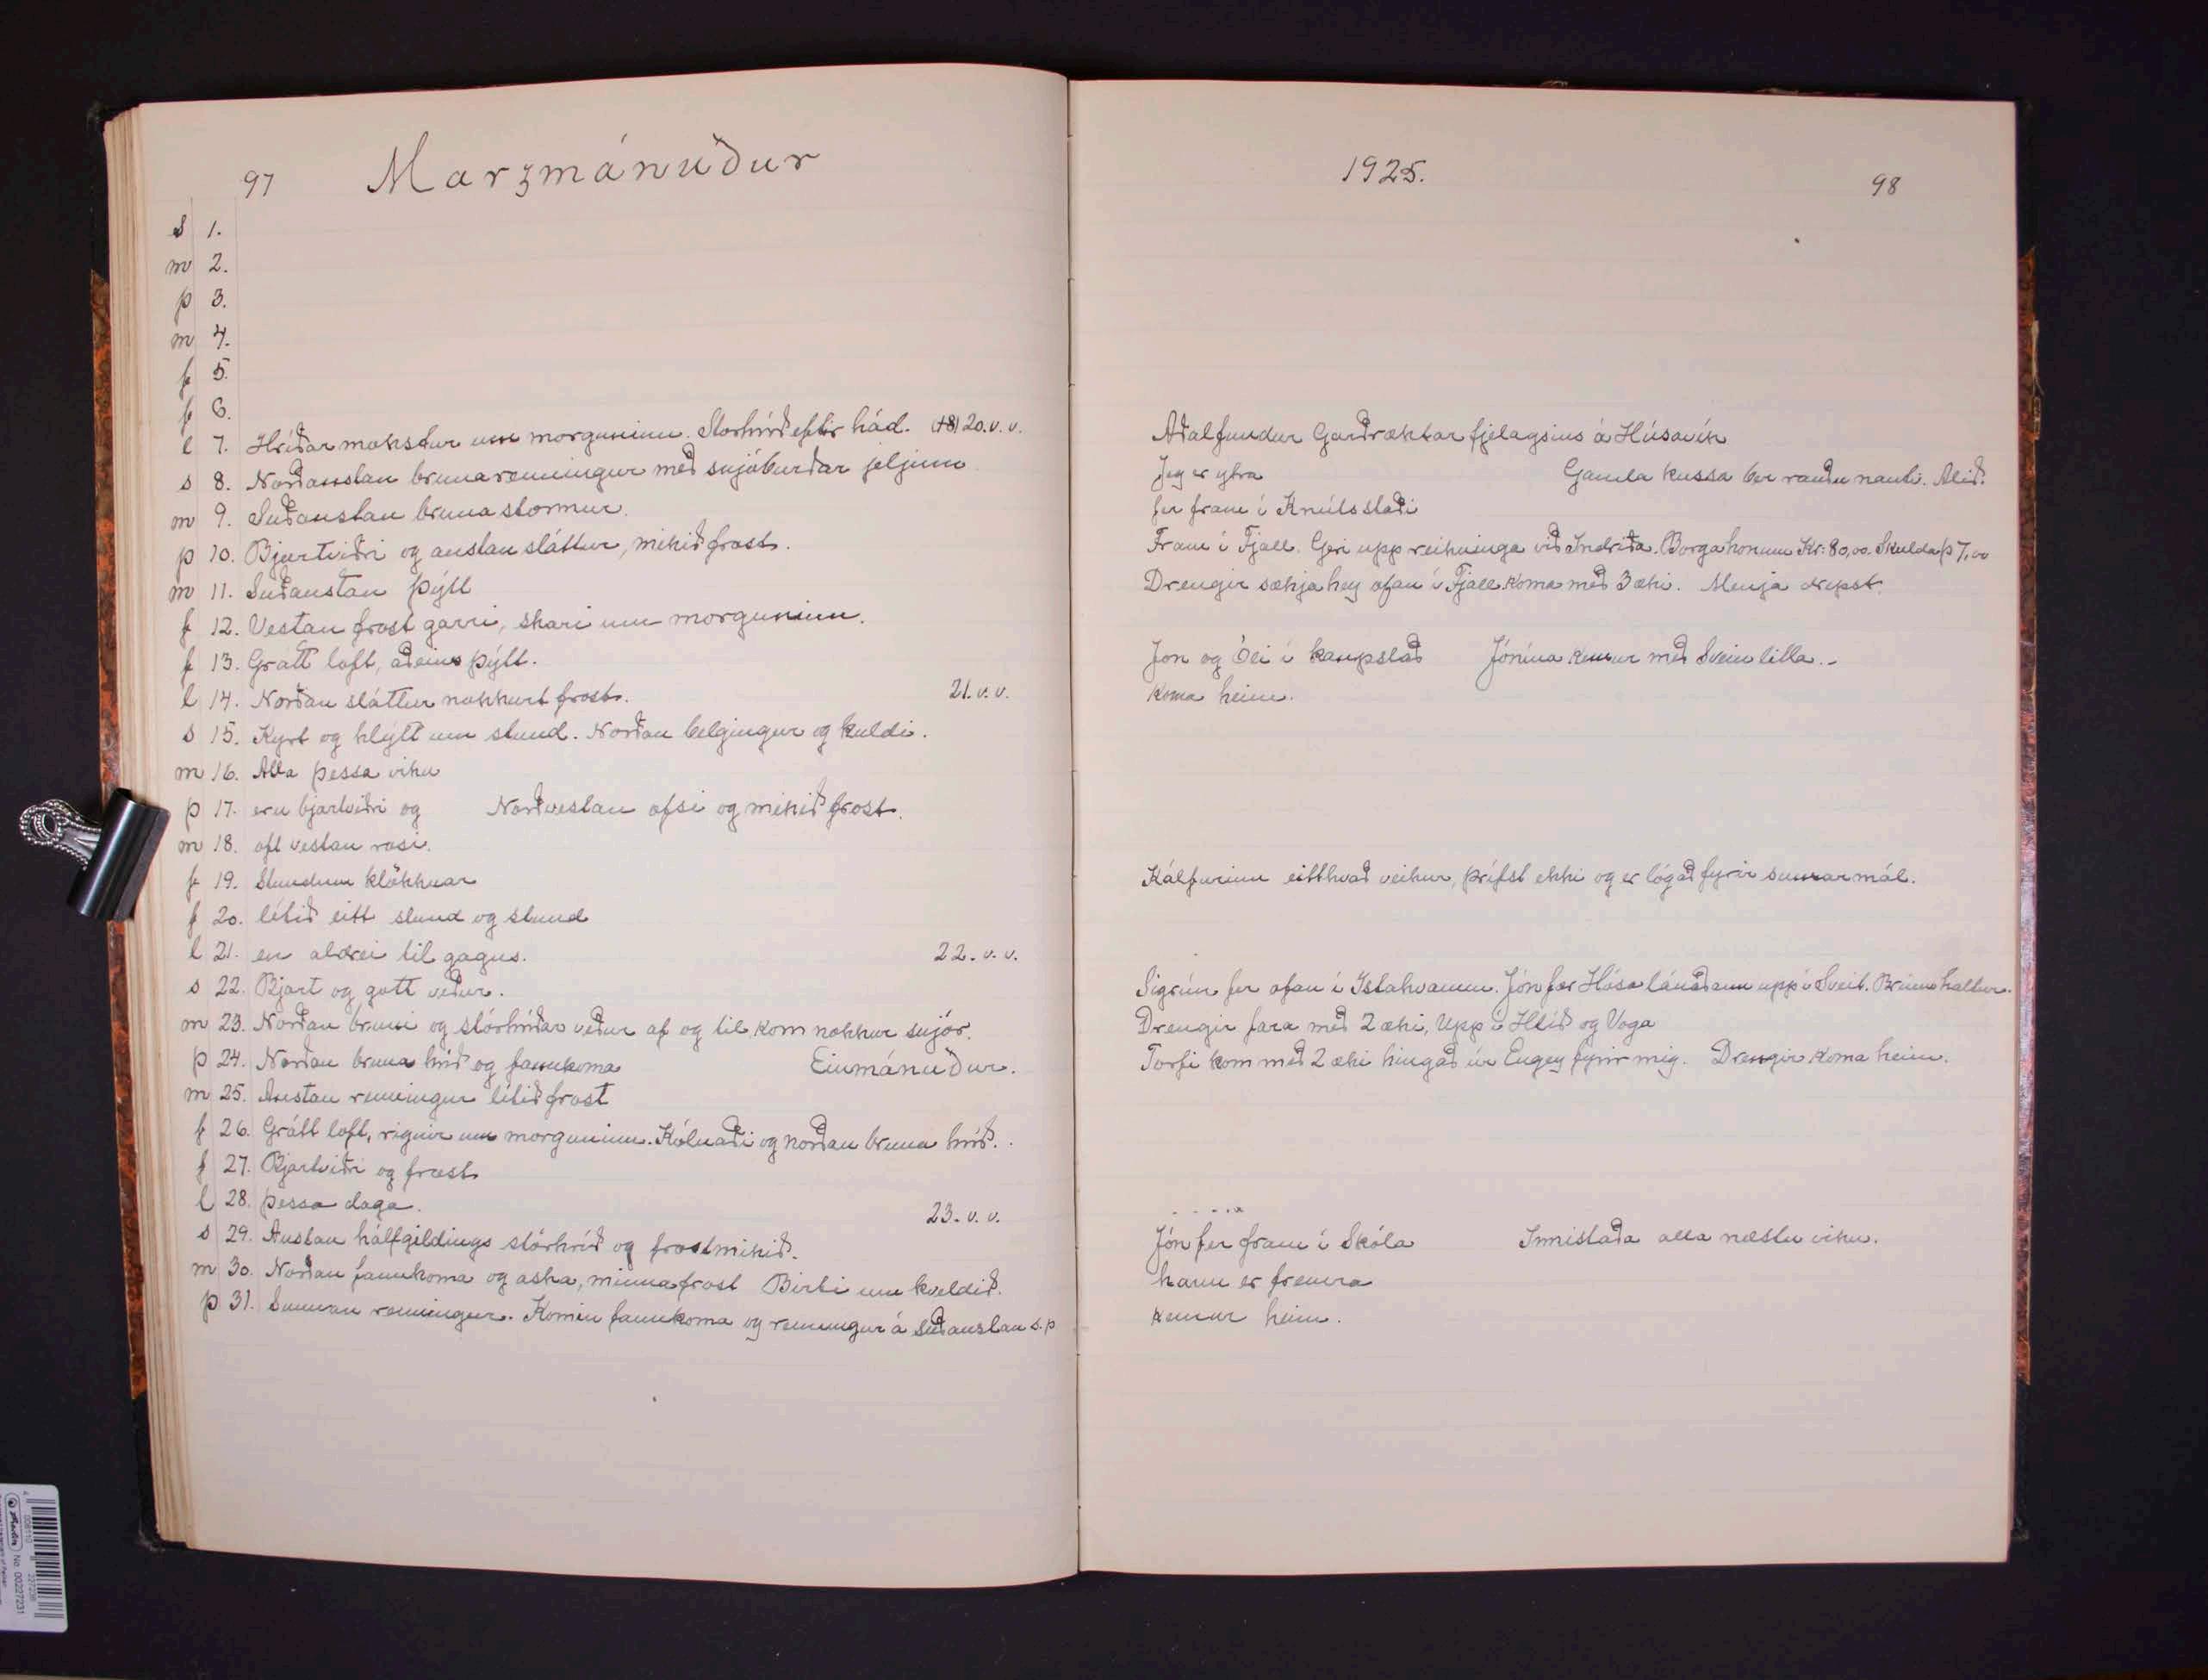 97 Marzmánuður
s 1.
m 2.
þ 3.
m 4.
f 5.
f 6.
l 7. Hríðar mokstur um morguninn. Stórhríð eftir hád. (+8) 20. v. v.
s 8. Norðaustan brunarenningur með snjóburðar jeljum
m 9. Suðaustan bruna stormur.
þ 10. Bjartviðri og austan sláttur, mikið frost.
m 11. Suðaustan þýtt
f 12. Vestan frost garri, skari um morguninn.
f 13. Grátt loft, aðeins þýtt.
l 14. Norðan sláttur nokkurt frost. 21. v. v.
s 15. Kyrt og hlýtt um stund. Norðan belgingur og kuldi.
m 16. Alla þessa viku
þ 17. eru bjartviðri og Norðvestan ofsi og mikið frost.
m 18. oft vestan rosi.
f 19. Stundum klökkvar
f 20. lítið eitt stund og stund
l 21. en aldrei til gagns. 22. v. v.
s 22. Bjart og gott veður.
m 23. Norðan bruni og stórhríðar veður af og til kom nokkur snjór.
þ 24. Norðan bruna hríð og fannkoma Einmánuður.
m 25. Austan renningur lítið frost
f 26. Grátt loft, rignir um morguninn. Kólnaði og norðan bruna hríð.
f 27. Bjartviðri og frost
l 28. þessa daga. 23. v. v.
s 29. Austan hálfgildings stórhríð og frostmikið.
m 30. Norðan fannkoma og aska, minna frost Birti um kveldið.
þ 31. Sunnan renningur. Komin fannkoma og renningur á Suðaustan s. þ
1925. 98
Aðalfundur Garðræktarfjelagsins á Húsavík
Jeg er ytra Gamla Kussa ber rauðu nauti. Alið.
fer fram í Knútsstaði
Fram í Fjall. Geri upp reikninga við Indriða. Borga honum Kr. 80,00. Skulda þ 7,00
Drengir sækja hey ofan í Fjall. Koma með 3 æki. Menja drepst.
Jón og Óli í kaupstað Jónína kemur með Svein litla.
Koma heim.
Kálfurinn eitthvað veikur, þrífst ekki og er lógað fyrir sumarmál.
Sigrún fer ofan í Ystahvamm. Jón fær Hósa lánaðann upp í Sveit. Brúnn haltur.
Drengir fara með 2 æki, Upp í Hlíð og Voga
Torfi kom með 2 æki hingað úr Engey fyrir mig. Drengir koma heim.
Jón fer fram í Skóla Innistaða alla næstu viku.
hann er fremra
kemur heim.